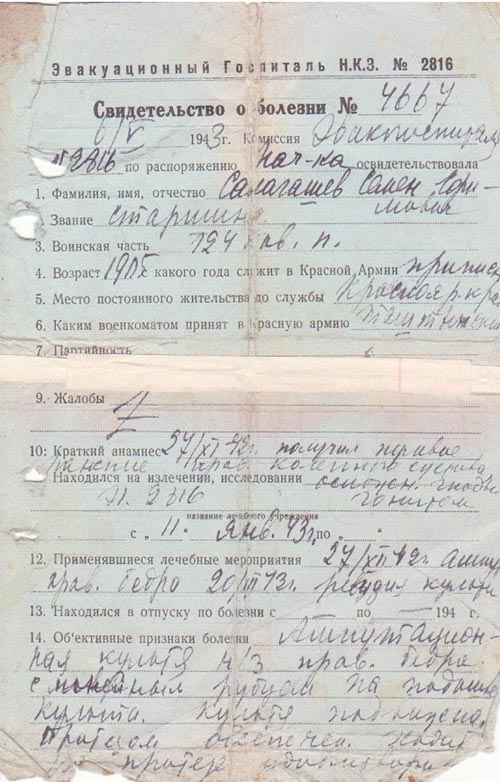 Эвакуационный Госпиталь Н.К.З. № 2816
Свидетельство о болезни № 4667
6/V 1943г. Комиссия Эвакгоспиталя
№2816 по распоряжению нач-ка освидетельствовала
1. Фамилия, имя, отчество Салагашев Семен Ефи-
мович
Звание старшина
3. Воинская часть 124 кав. п.
4. Возраст какого года служит в Красной Армии
5. Место постоянного жительства до службы Красноярск. кр.
6. Каким военкоматом принят в Красную армию
7. Партийность
9. Жалобы
10: Краткий анамнез 27/XI 42г. получил пулевое
ранение прав. коленного сустава
Находился на излечении, исследовании осложн. гнойн.
гонитом
2816
название лечебного учреждения
с „ 11 " янв. 43г. по „ "
12. Применявшиеся лечебные мероприятия 27/XII 42г. ампу
прав. бедро 20/III 43г. культи
13. Находился в отпуску по болезни с по 194 г.
14. Об'ективные признаки болезни Ампутацион-
ная культя н/з прав. бедра
с рубцом на
культи. культя подвижна.
Протезом обеспечен. ходит
протезе